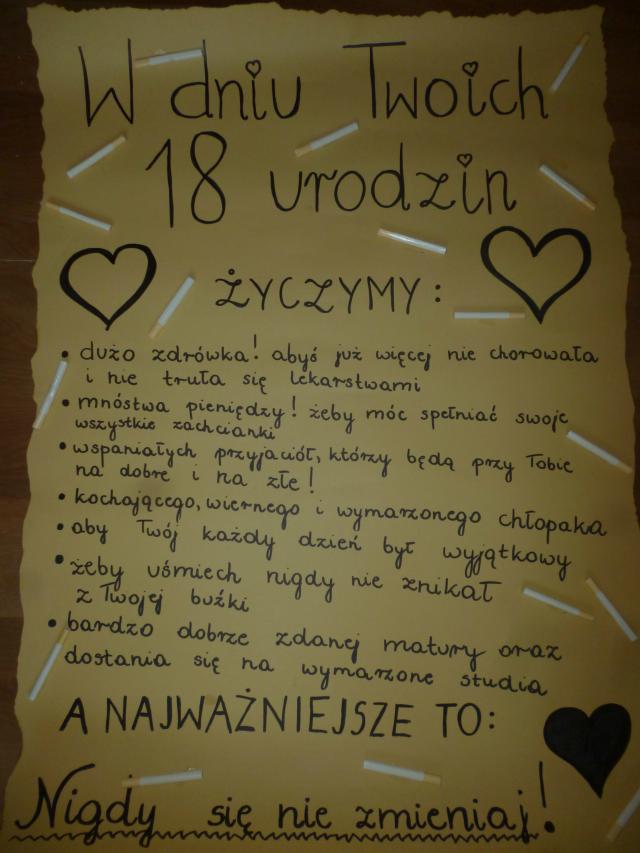 W dniu Twoich
18 urodzin
ŻYCZYMY:
• dużo zdrówka! abyś już więcej nie chorowała
i nie truła się lekarstwami
• mnóstwa pieniędzy! żeby móc spełniać swoje
wszystkie zachcianki
• wspaniałych przyjaciół, którzy będą przy Tobie
na dobre i na złe!
• kochającego, wiernego i wymarzonego chłopaka
• aby Twój każdy dzień był wyjątkowy
• żeby uśmiech nigdy nie znikał
z Twojej buźki
• bardzo dobrze zdanej matury oraz
dostania się na wymarzone studia
A NAJWAŻNIEJSZE TO:
Nigdy się nie zmieniaj!